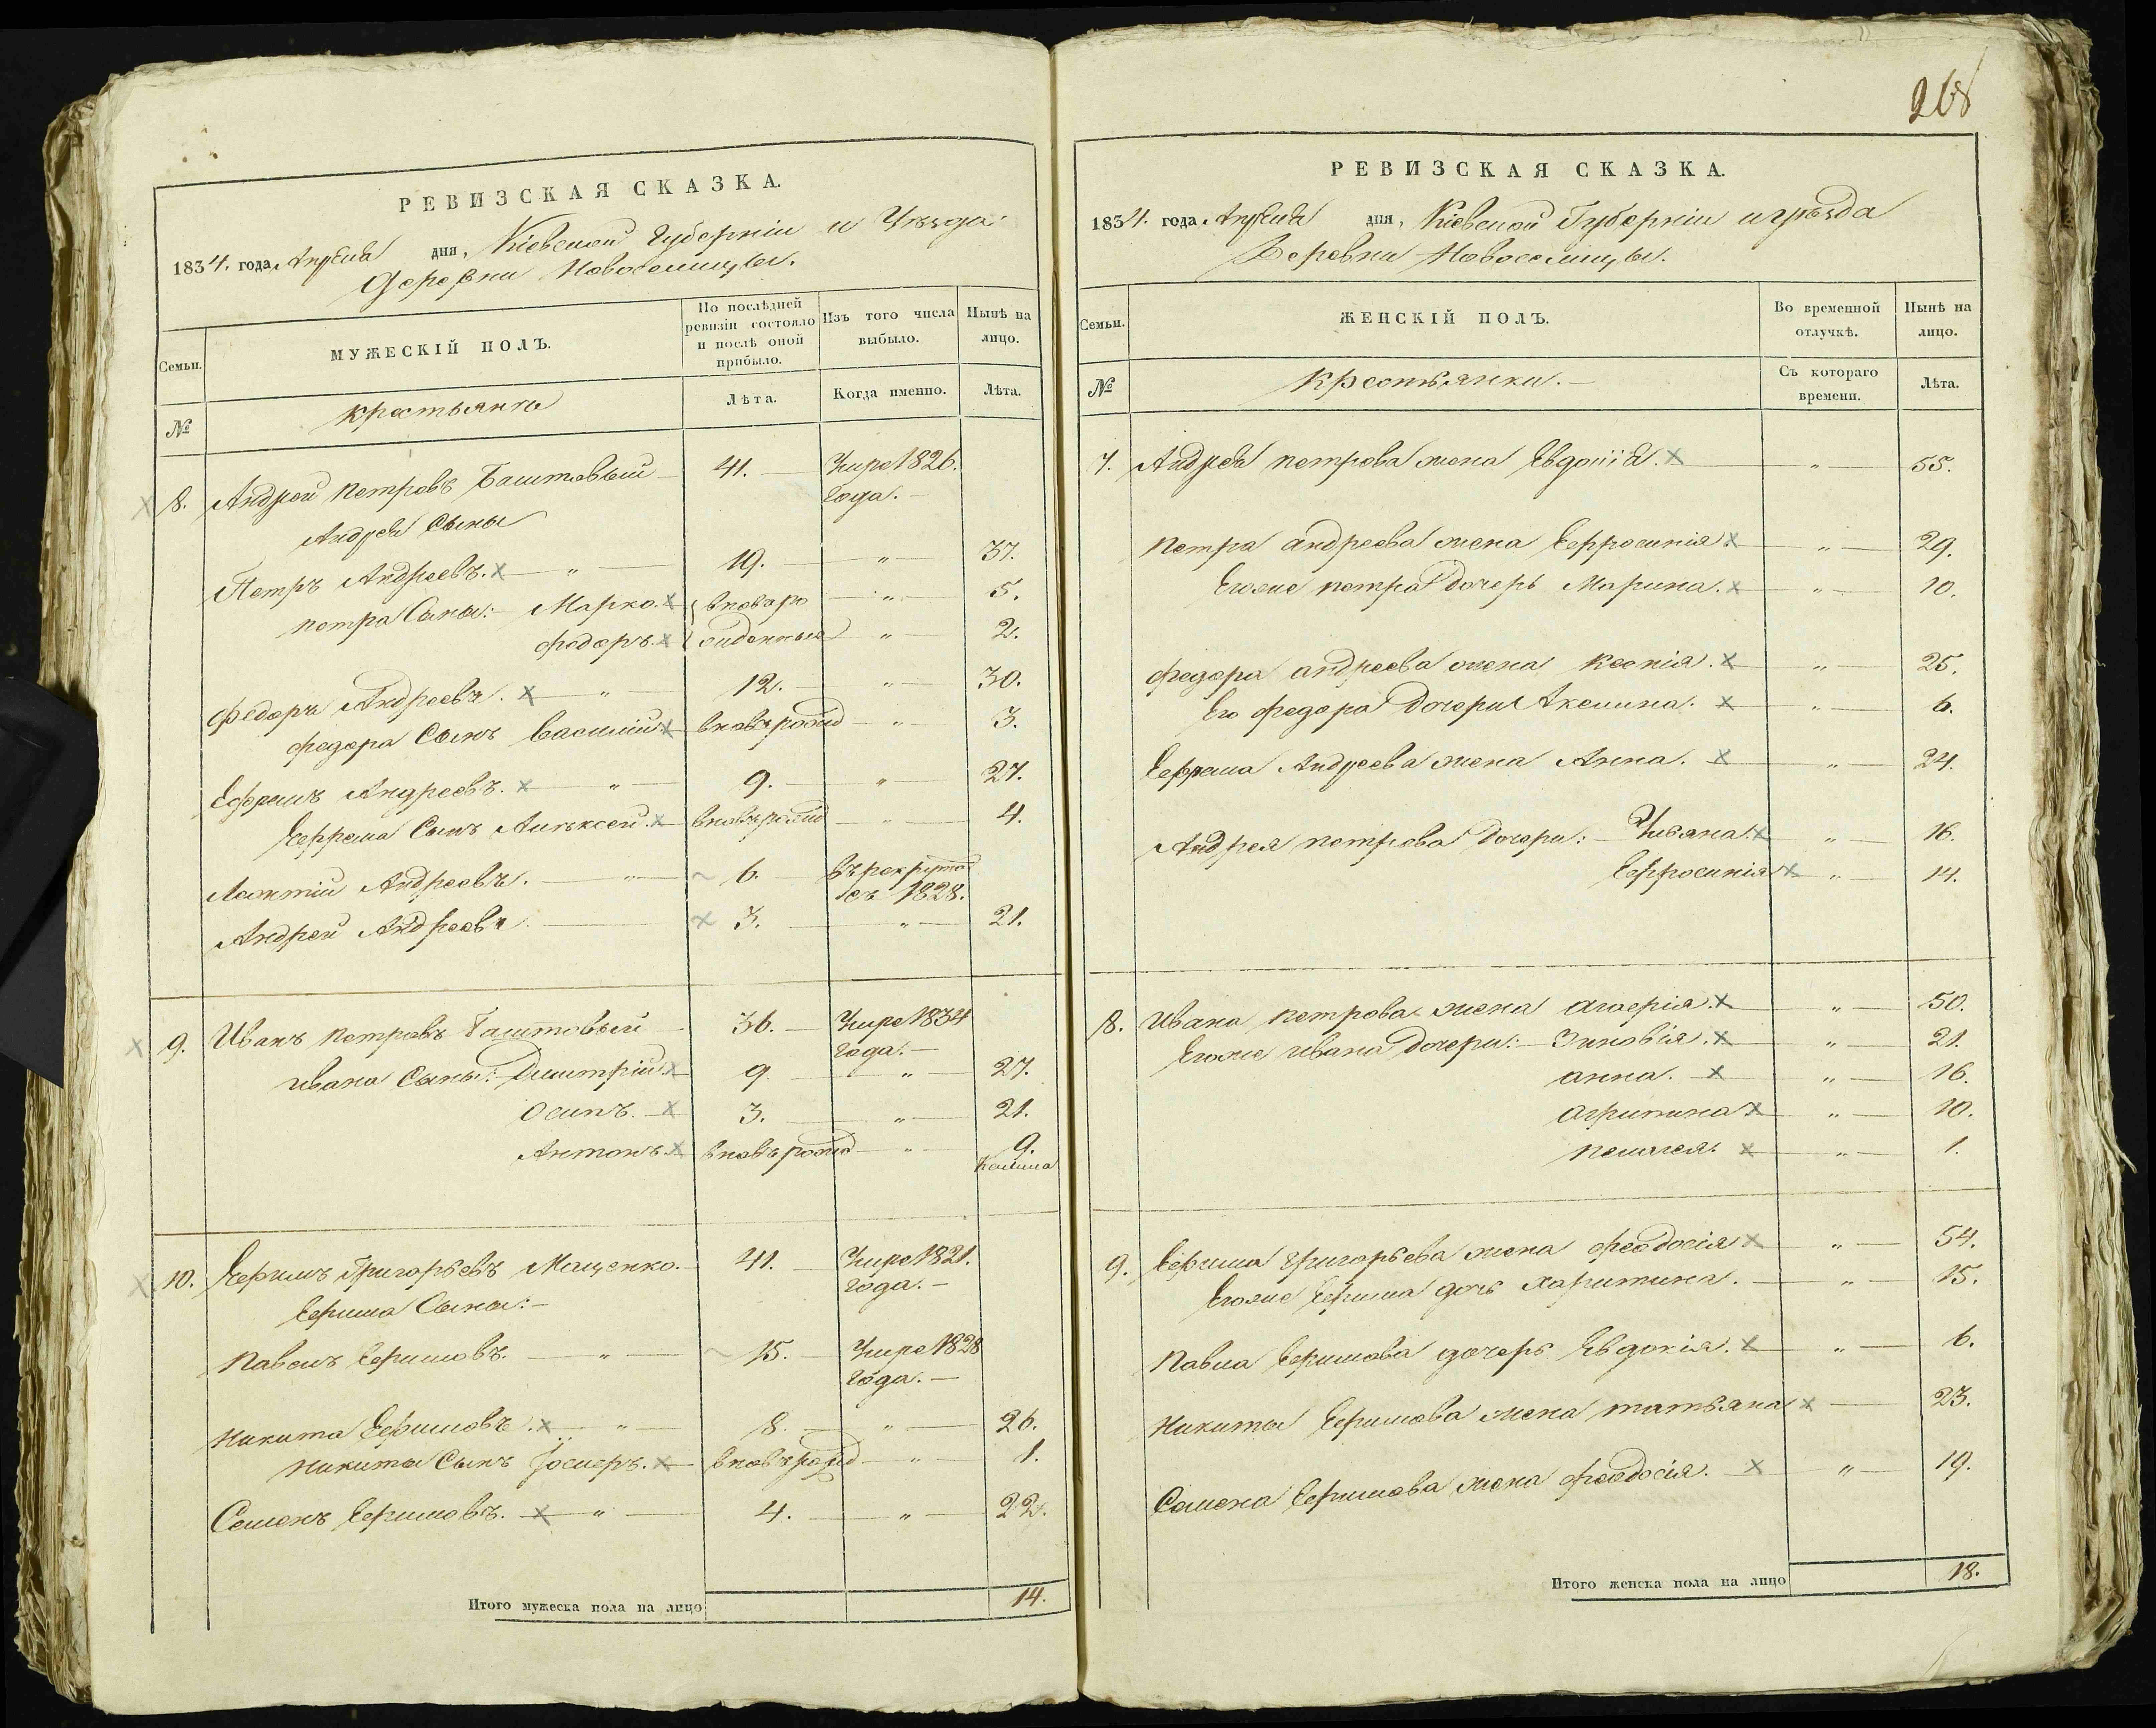 268
РЕВИЗСКАЯ СКАЗКА.
1834. года Апреля дня, Кіевской Губерніи и Уезда
Деревни Новоселицы.
Семьи.
МУЖЕСКІЙ ПОЛЪ.
По послѣдней
ревизіи состояло
и послѣ оной
прибыло.
Изъ того числа
выбыло.
Нынѣ на
лицо.
№
Крестьянъ
Лѣта.
Когда именно.
Лѣта.
8. Андрей Петровъ Баштовый 41. Умре 1826.
года.
Андрея Сыны
Петръ Андреевъ. " 19. " 37.
петра Сыны: Марко. вновь ро " 5.
федоръ. жденныя " 2.
Федоръ Андреевъ. " 12. " 30.
федора Сынъ Василий вновь рожд " 3.
Ефремъ Андреевъ. " 9. " 27.
Ефрема Сынъ Алексей. вновь рожд " 4.
Леонтий Андреевъ. " 6. въ рекрут
съ 1828.
Андрей Андреевъ. 3. " 21.
9. Иванъ Петровъ Баштовый 36. Умре 1834
года.
ивана Сыны: Дмитрий 9 " 27.
Осипъ. 3. " 21.
Антонъ. вновь рожд " 9.
10. Ефимъ Григорьевъ Мащенко. 41. Умре 1821.
года.
Ефима Сыны:
Павелъ Ефимовъ. " 15. Умре 1828
года.
Никита Ефимовъ. " 8. " 26.
Никиты Сынъ вновь рожд " 1.
Семенъ Ефимовъ. " 4. " 22.
Итого мужеска пола на лицо 14.
РЕВИЗСКАЯ СКАЗКА.
1834. года Апреля дня, Кіевской Губерніи и уезда
Деревни Новоселицы.
Семьи.
ЖЕНСКІЙ ПОЛЪ.
Во временной
отлучкѣ.
Нынѣ на
лицо.
№
Крестьянки.
Съ котораго
времени.
Лѣта.
7. Андрея петрова жена Евдокія. " 55.
Петра андреева жена Ефросинія. " 29.
Егоже петра дочерь Марина. " 10.
федора андреева жена Ксенія. " 25.
Его федора дочери Акелина. " 6.
Ефрема Андреева жена Анна. " 24.
Андрея петрова дочери: Уляна. " 16.
Ефросинія " 14.
8. Ивана петрова жена " 50.
Егоже ивана дочери: Зиновія. " 21.
анна. " 16.
агрипина " 10.
пелагея. " 1.
9. Ефима григорьева жена феодосія " 54.
Егоже Ефима дочь харитина. " 15.
Павла Ефимова дочерь Евдокія. " 6.
Никиты Ефимова жена татьяна 23.
Семена Ефимова жена феодосія. " 19.
Итого женска пола на лицо 18.